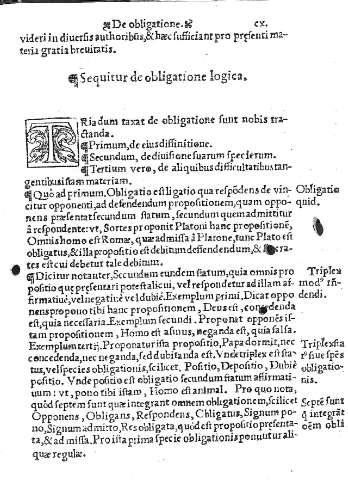 De obligatione. cx.
videri in diuersis authoribus, & hæc sufficiant pro presenti ma-
teria gratia breuitatis.
¶Sequitur de obligatione logica.
TRia dum taxat de obligatione sunt nobis tra-
ctanda.
¶Primum, de eius diffinitione.
¶Secundum, de diuisione suarum specierum.
¶Tertium vero, de aliquibus difficultatibus tan-
gentibus istam materiam.
¶Quò ad primum, Obligatio est ligatio qua respōdens de vin-
citur opponenti, ad defendendum propositionem, quam oppo-
nens præsentat secundum statum, secundum quem admittitur
à respondente: vt, Sortes proponit Platoni hanc propositionē,
Omnis homo est Romæ, quæ admissa à Platone, tunc Plato est
obligatus, & illa propositio est debitum deffendendum, & Socra-
tes est cui debetur tale debitum.
Obligatio
quid.
¶Dicitur notanter, Secundum eundem statum, quia omnis pro
positio que presentari potest alicui, vel respondetur ad illam af-
firmatiuè, vel negatiuè vel dubiè. Exemplum primi, Dicat oppo
nens propono tibi hanc propositionem, Deus est, concedenda
est, quia necessaria. Exemplum secundi. Proponat opponēs is-
tam propositionem, Homo est asinus, neganda est, quia falsa.
Exemplum tertij. Proponatur ista propositio, Papa dormit, nec
concedenda, nec neganda, sed dubitanda est. Vnde triplex est sta-
tus, vel species obligationis, scilicet, Positio, Depositio, Dubiè
positio. Vnde positio est obligatio secundum statum affirmati-
uum: vt, pono tibi istam, Homo est animal. Pro quo nota,
quòd septem sunt quæ integrant omnem obligationem, scilicet
Opponens, Obligans, Respondens, Obligatus, Signum po-
no, Signum admitto, Res obligata, quòd est propositio presenta-
ta, & admissa. Pro ista prima specie obligationis ponuntur ali-
quæ regulæ.
Triplex
mod²
dendi.
Triplex sta
obligatio-
nis.
Septē sunt
q̄ integrāt
oēm obli